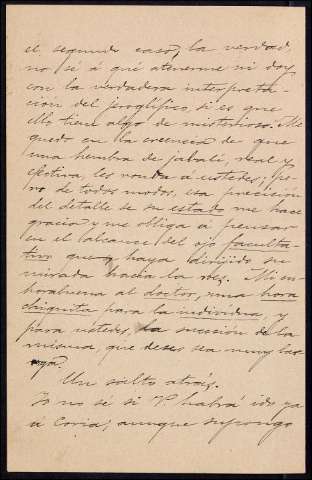 el segundo caso, la verdad,
no sé á qué atenerme ni doy
con la verdadera interpreta-
ción del geroglífico, si es que
ello tien algo de misterioso. Me
quedo en la creencia de que
una hembra de jabalí, real y
efectiva, les ronda á ustedes; pe-
ro de todos modos, esa precisión
del detalle de su estado me hace
gracia y me obliga á pensar
en el balcance del ojo faculta-
tivo que haya dirigido su
mirada hacia la res. Mi en-
horabuena al doctor, una hora
chiquita para la individua, y
para ustedes, la sucesión de la
misma, que deseo sea muy lar-
ga.
Un salto atrás.
Yo no sé si V. habrá ido ya
á Coria; aunque supongo